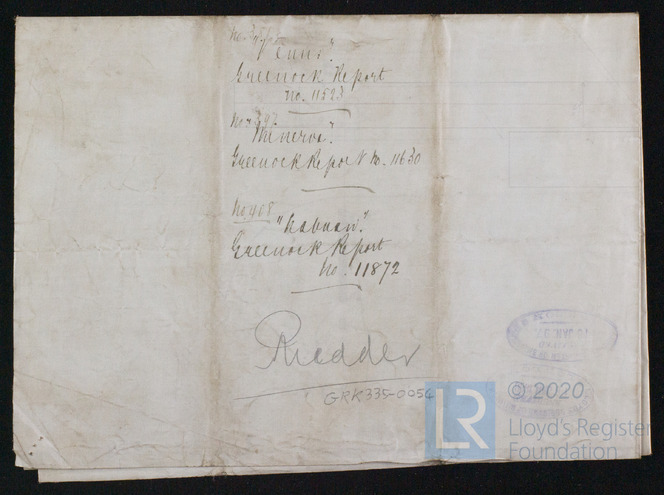 Greenock Report
No. 11523
"Minerva".
Greenock Report No. 11630
No 408
"Labuan".
Greenock Report
No. 11872
Rudder
GRK335-0054
LR
© 2020
Lloyd's Register
Foundation